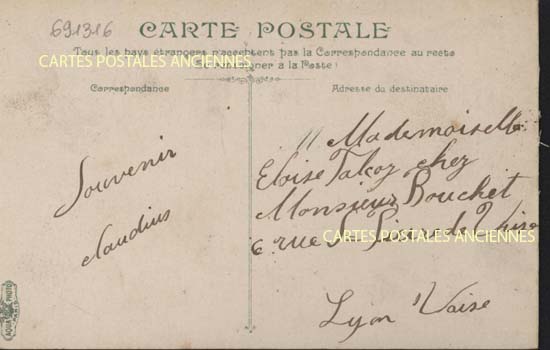 691316
CARTE POSTALE
Tous les pays étrangers n'acceptent pas la Correspondance au recto
CARTES POSTALES ANCIENNES
à la Poste!
Correspondance
Adresse du destinataire
Souvenir
Claudius
" Mademoiselle
Eloise Talcoz chez
Monsieur Bouchet
6 rue St Pierre de Vaise
CARTES POSTALES ANCIENNES
Lyon Vaise
AQUA PHOTO
PARIS